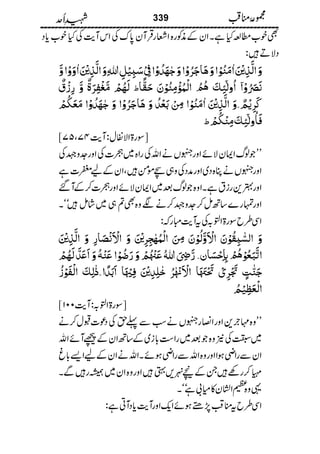 مجموعہ مناقب 339 شہیدِ اُحد
بھی خوب مطالعہ کیا ہے۔ ان کے مذکورہ اشعار قرآن پاک کی اس آیت کی خوب یاد
دلاتے ہیں:
وَ الَّذِیْنَ اٰمَنُوْا وَ هَاجَرُوْا وَ جٰهَدُوْا فِیْ سَبِیْلِ اللّٰهِ وَ الَّذِیْنَ اٰوَوْا وَّ
نَصَرُوْۤا اُولٰٓىِٕكَ هُمُ الْمُؤْمِنُوْنَ حَقًّا ؕ لَهُمْ مَّغْفِرَةٌ وَّ رِزْقٌ
كَرِیْمٌ۔ وَ الَّذِیْنَ اٰمَنُوْا مِنْۢ بَعْدُ وَ هَاجَرُوْا وَ جٰهَدُوْا مَعَكُمْ
فَاُولٰٓىِٕكَ مِنْكُمْ ؕ
[سورۃ الانفال: آیت ۷۴، ۷۵]
’’جو لوگ ایمان لائے اور جنہوں نے اللہ کی راہ میں ہجرت کی اور جدوجہد کی
اور جنہوں نے پناہ دی اور مدد کی وہی سچے مومن ہیں، ان کے لیے مغفرت ہے
اور بہترین رزق ہے۔ اور جو لوگ بعد میں ایمان لائے اور ہجرت کر کے آگئے
اور تمہارے ساتھ مل کر جدوجہد کرنے لگے وہ بھی تم ہی میں شامل ہیں‘‘۔
اسی طرح سورۃ التوبہ کی یہ آیت مبارکہ:
وَ السّٰبِقُوْنَ الْاَوَّلُوْنَ مِنَ الْمُهٰجِرِیْنَ وَ الْاَنْصَارِ وَ الَّذِیْنَ
اتَّبَعُوْهُمْ بِاِحْسَانٍ، رَّضِیَ اللّٰهُ عَنْهُمْ وَ رَضُوْا عَنْهُ وَ اَعَدَّ لَهُمْ
جَنّٰتٍ تَجْرِیْ تَحْتَهَا الْاَنْهٰرُ خٰلِدِیْنَ فِیْهَاۤ اَبَدًا ؕ ذٰلِكَ الْفَوْزُ
الْعَظِیْمُ
[سورۃ التوبہ: آیت ۱۰۰]
’’وہ مہاجرین اور انصار جنہوں نے سب سے پہلے حق کی دعوت قبول کرنے
میں سبقت کی نیز وہ جو بعد میں راست بازی کے ساتھ ان کے پیچھے آئے اللہ
ان سے راضی ہوا اور وہ اللہ سے راضی ہوئے۔ اللہ نے ان کے لیے ایسے باغ
مہیا کر رکھے ہیں جن کے نیچے نہریں بہتی ہیں اور وہ ان میں ہمیشہ رہیں گے۔
یہی وہ عظیم الشان کامیابی ہے‘‘۔
اسی طرح یہ مناقب پڑھتے ہوئے ایک اور آیت یاد آتی ہے: